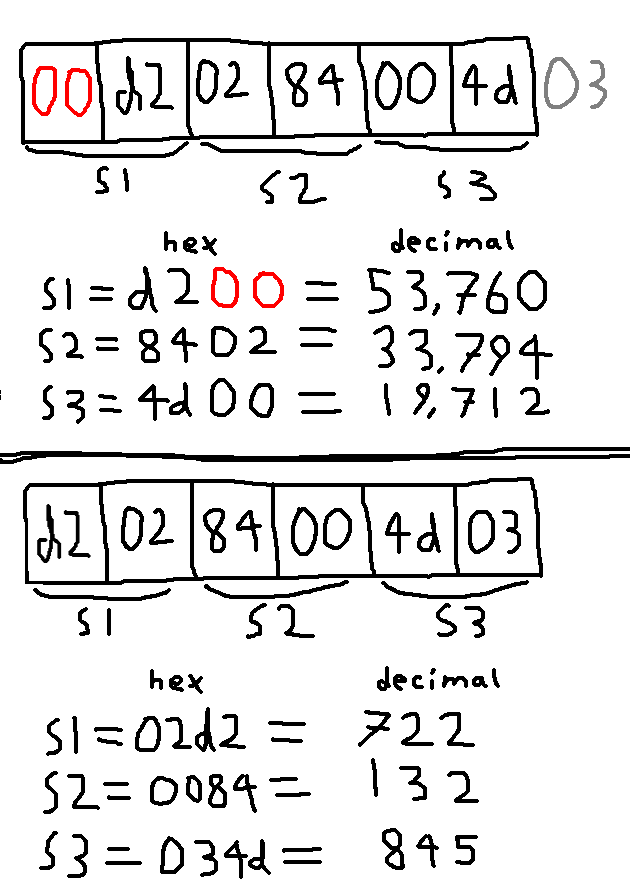 00 d2 02 84 00 4d 03
S1 S2 S3
hex decimal
S1 = d200 = 53,760
S2 = 8402 = 33,794
S3 = 4d00 = 19,712
d2 02 84 00 4d 03
S1 S2 S3
hex decimal
S1 = 02d2 = 722
S2 = 0084 = 132
S3 = 034d = 845